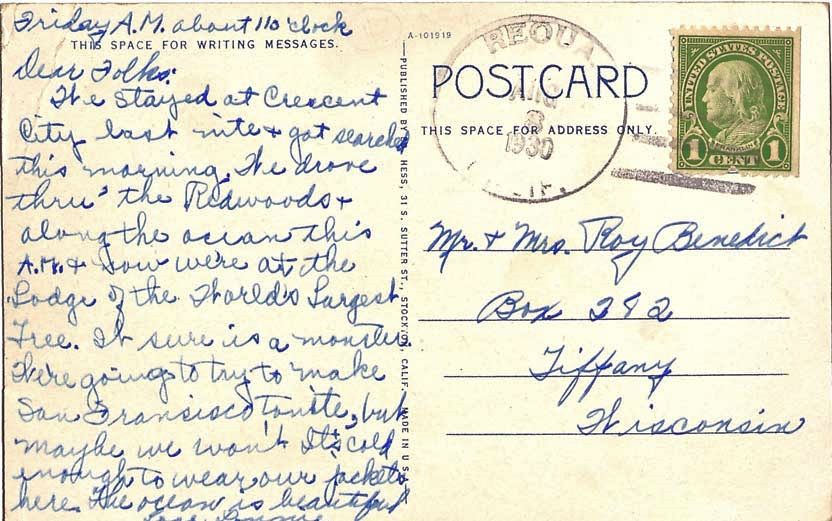 Friday A.M. about 11 o'clock
THIS SPACE FOR WRITING MESSAGES.
Dear Folks:
We stayed at Crescent
City last nite & got searched
this morning. We drove
thru' the Redwoods &
along the ocean this
A.M. & now we're at the
Lodge of the World's Largest
Tree. It sure is a monster
We're going to try to make
San Fransisco tonite, but
maybe we won't. It's cold
enough to wear our jackets
here. The ocean is beautiful
Love
A-101919
PUBLISHED BY HESS, 31 S. SUTTER ST., STOCKTON, CALIF. MADE IN U.S.A.
REQUA
AUG
8
1930
CALIF.
UNITED STATES POSTAGE
FRANKLIN
1 CENT 1
POST CARD
THIS SPACE FOR ADDRESS ONLY.
Mr. & Mrs. Roy Benedict
Box 282
Tiffany
Wisconsin